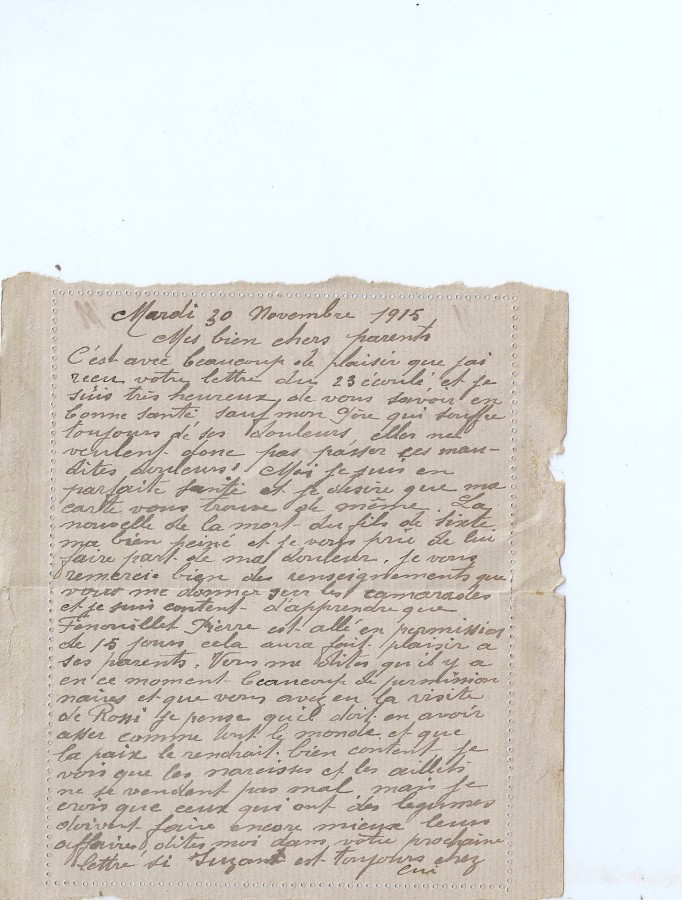 Mardi 30 Novembre 1915
Mes bien chers parents
C'est avec beaucoup de plaisir que j'ai
recu votre lettre du 23 écoulé et je
suis très heureux de vous savoir en
bonne santé sauf mon Père qui souffre
toujours de ses douleurs, elles ne
veulent donc pas passer ces mau-
dites douleurs. Moi je suis en
parfaite santé et je désire que ma
carte vous trouve de même. La
nouvelle de la mort du fils de Sixte
ma bien peiné et je vous prie de lui
faire part de ma douleur. Je vous
remercie bien des renseignements que
vous me donner sur les camarades
et je suis content d'apprendre que
Fenouillet Pierre est allé en permission
de 15 jours cela aura fait plaisir a
ses parents. Vous me dites qu'il y a
en ce moment beaucoup de permission
naires et que vous avez eu la visite
de Rossi je pense qu'il doit en avoir
assez comme tout le monde et que
la paix le rendrait bien content je
vois que les narcisses et les œillets
ne se vendent pas mal mais je
crois que ceux qui ont des legumes
doivent faire encore mieux leurs
affaires, dites moi dans votre prochaine
lettre si est toujours chez